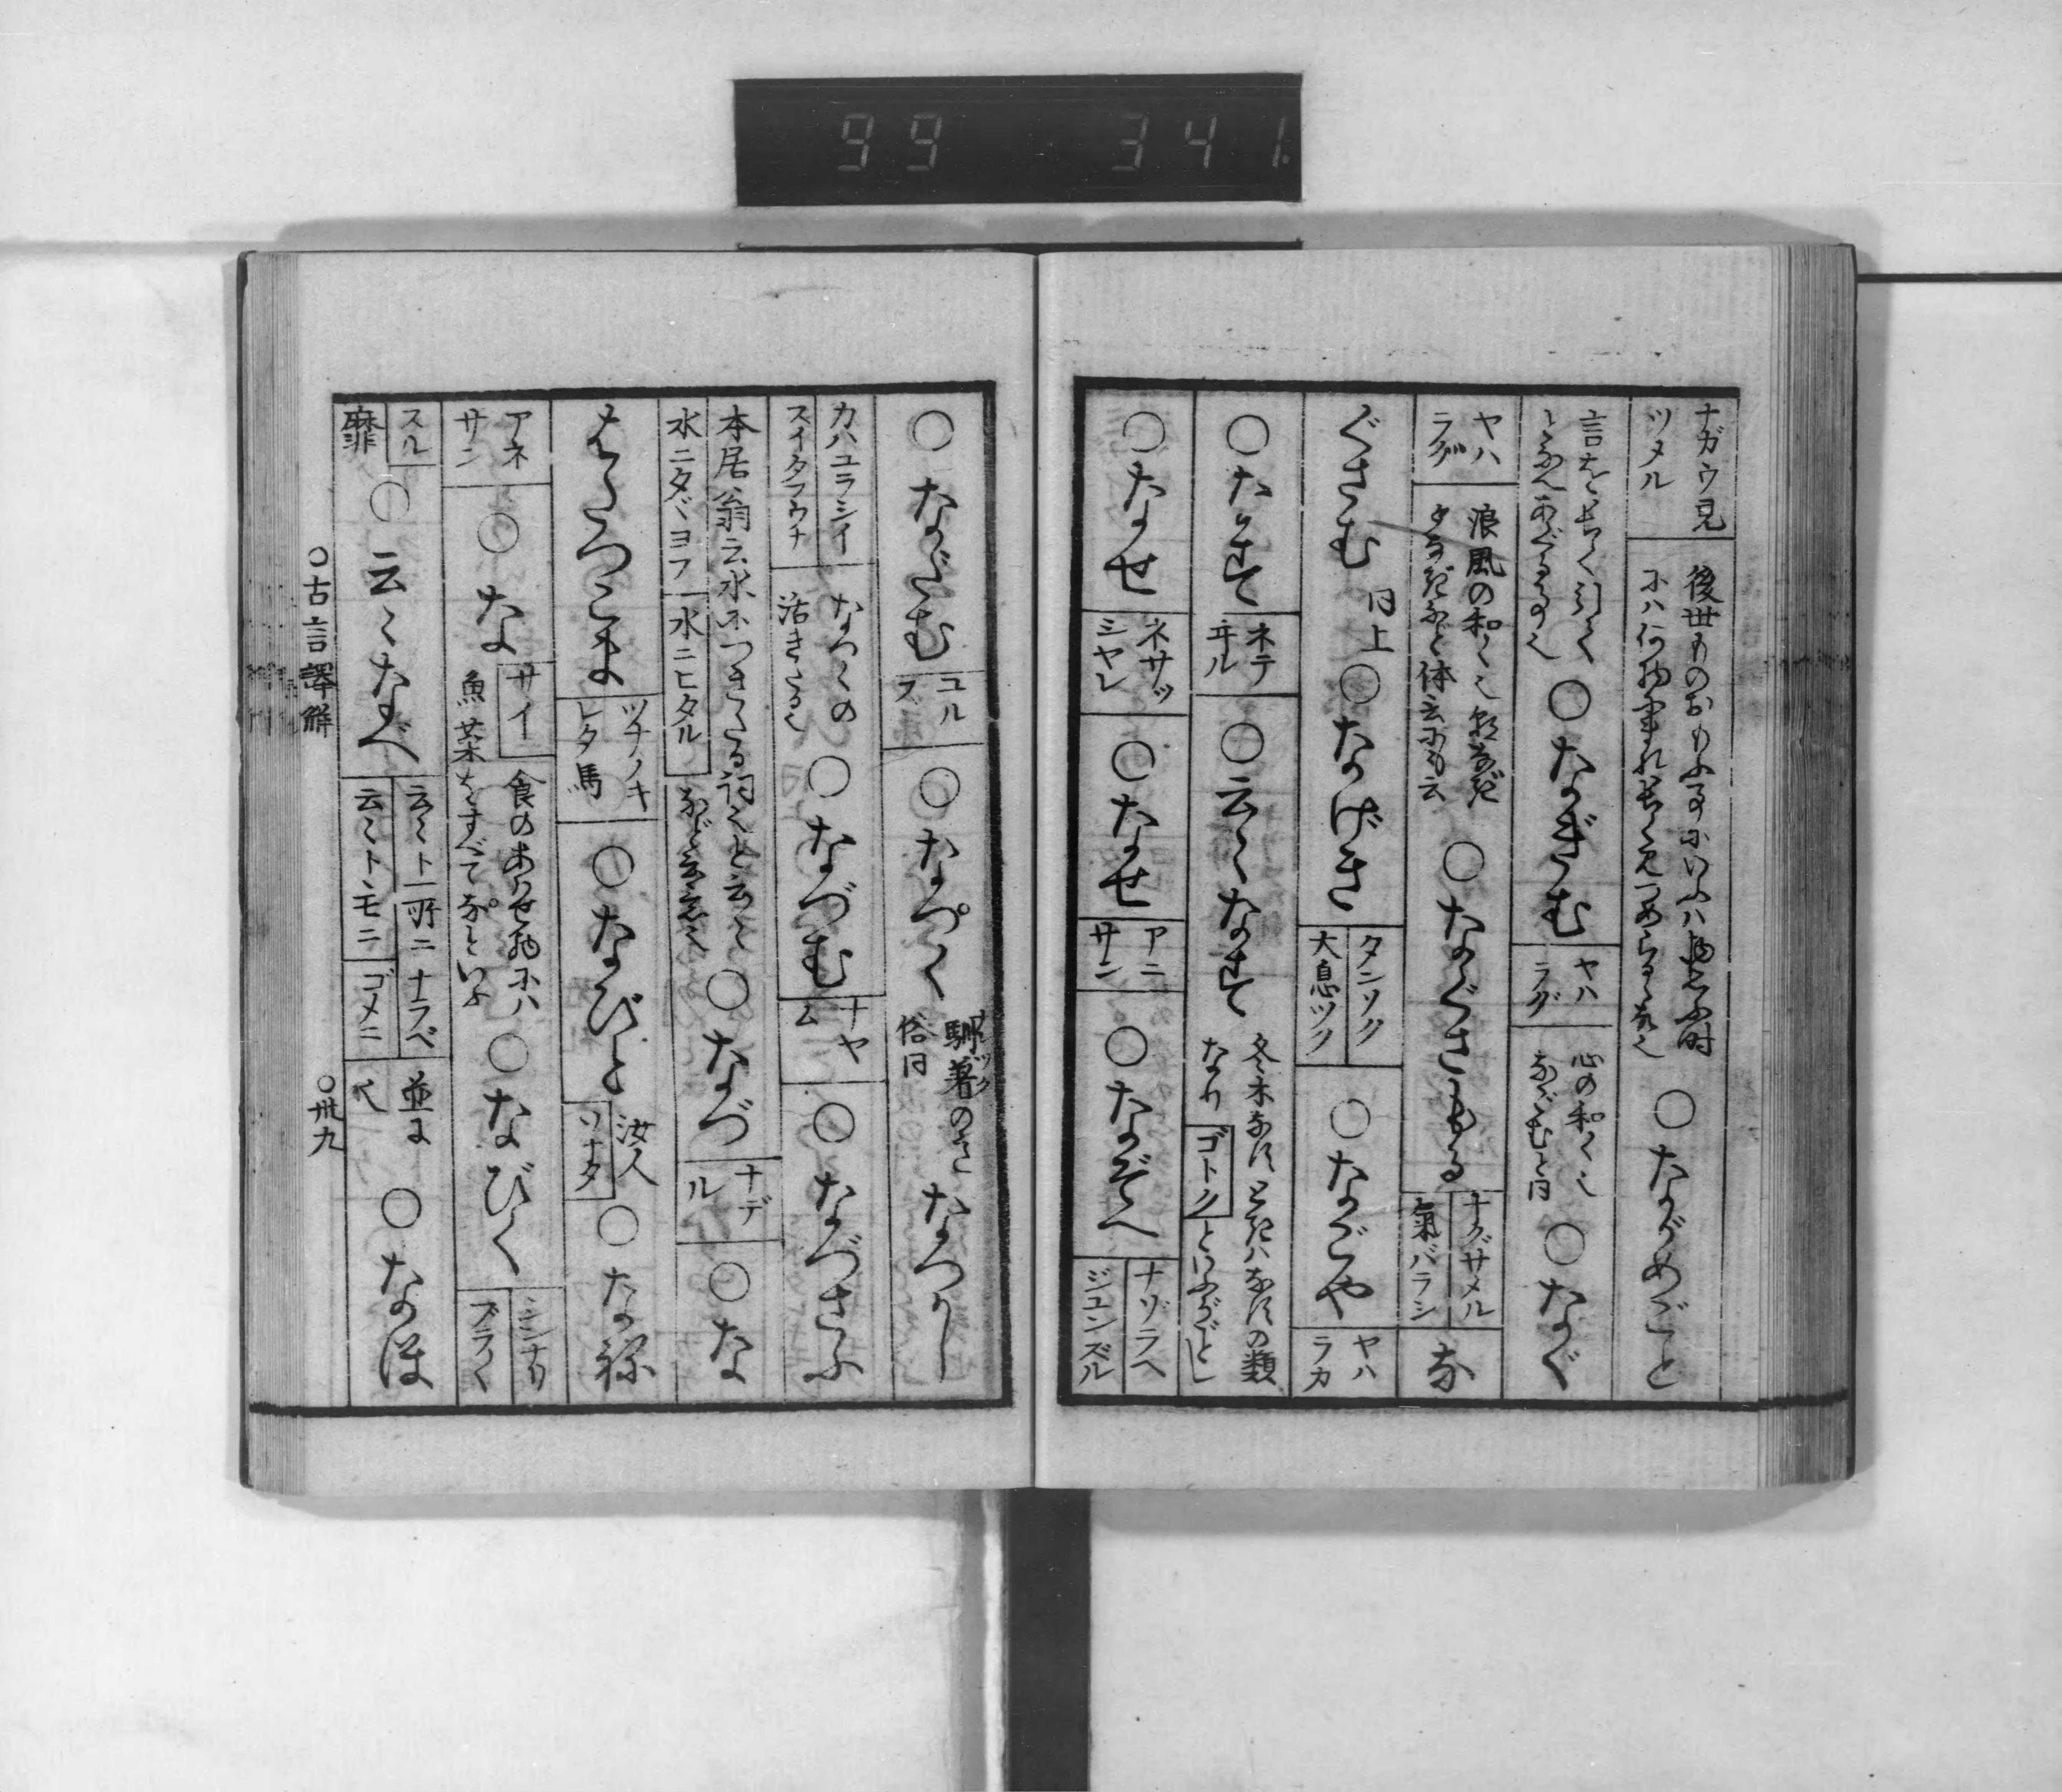 99 341.
ナガウ見
ツメル
後世ものおもふ事にいふハ物思ふ時
にハ何物にまれ長く見つめらるゝ故也
○ながめごと
言を長く引く
○なぎむ
ヤハ
ラグ
心の和く也
なごむと同
○なぐ
ヤハ
ラグ
浪風の和く也朝なぎ
夕なぎなど体云にも云
○なぐさもる
ナグサメル
氣バラシ
な
ぐさむ
同上
○なげき
タンソク
大息ツク
○なごや
ヤハ
ラカ
○なすて
ネテ
ヰル
○云々なすて
冬木なすときハなすの類
なり
ゴトク
といふがごとし
○なせ
ネサツ
シヤレ
○なせ
アニ
サン
○なぞへ
ナゾラヘ
ジユンズル
○なだむ
ユル
ス
○なつく
馴著のさ
ナツク
俗同
なつかし
カハユラシイ
スイタラウチ
なつくの
活きたる也
○なづむ
ナヤ
ム
○なづさふ
本居翁云水につきたる詞也と云々
水ニタヾヨフ
水ニヒタル
など云意也
○なづ
ナデ
ル
○な
ツナノキ
レタ馬
○なびと
汝人
ソナタ
○なね
アネ
サン
○な
サイ
食のあはせ物にハ
魚菜をすべてなといふ
○なびく
シンナリ
ズラく
スル
靡
○云々なべ
云々ト一所ニナラベ
云々トモニ
ゴメニ
並に
也
○なほ
○古言譯解
○卅九